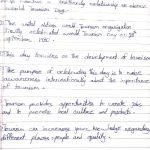 World Tourism Day.
The United Nations World Tourism Organisation
World Tourism Day on
September, 1980.
This day focuses on the development of tourism
The purpose of celebrating this day is to raise
awareness internationally about the importance
of tourism.
Tourism provides opportunities to create jobs
and to promote local culture and products.
Tourism can increase your knowledge regarding
different places people and quality.